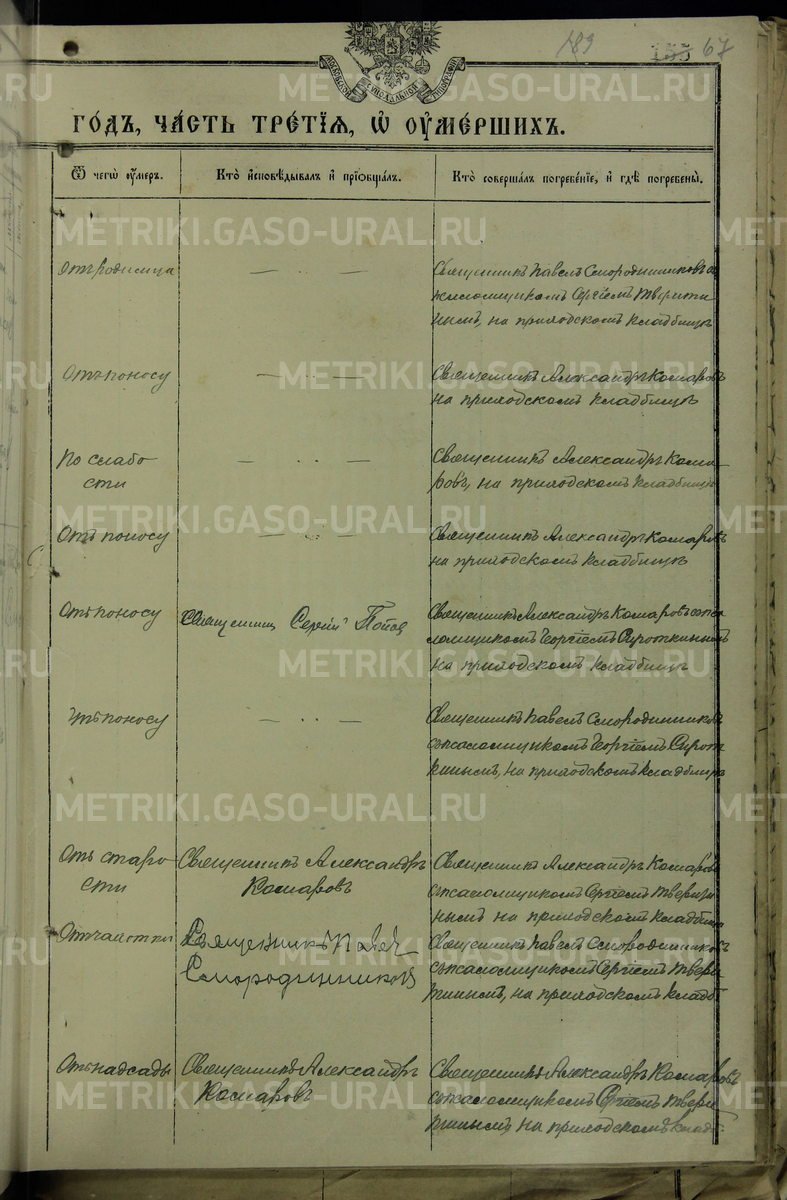 183
155 67
МОСКОВСКОЙ СѴНОДАЛЬНОЙ ТИПОГРАФІИ
ГО́ДЪ, ЧА́СТЬ ТРЕ́ТЇѦ, Ѡ҆ ОУ҆МЕ́РШИХЪ.
Ѿ чегѡ̀ оу҆́меръ.
Кто̀ и҆сповѣ́дывалъ и҆ прїѡбща́лъ.
Кто̀ соверша́лъ погребе́нїе, и҆ гдѣ̀ погребены̀.
Отъ родимца
— .. —
Священникъ Павелъ Смородинниковъ съ
псаломщикомъ Сергіемъ Тверити
нымъ, на приходскомъ кладбищѣ
Отъ поносу
— .. —
Священникъ Александръ Комаровъ
на приходскомъ кладбищѣ
По слабо
сти
— .. —
Священникъ Александръ Кома
ровъ, на приходскомъ кладбищѣ
Отъ поносу
— .. —
Священникъ Александръ Комаровъ
на приходскомъ кладбищѣ
Отъ поносу
Священникъ Сергій Попов
Священникъ Александръ Комаровъ съ пса
ломщикомъ Георгіемъ Сироткинымъ
на приходскомъ кладбищѣ
Отъ поносу
— .. —
Священникъ Павелъ Смородинниковъ
съ псаломщикомъ Георгіемъ Сирот
кинымъ, на приходскомъ кладбищѣ
Отъ старо
сти
Священникъ Александръ
Комаровъ
Священникъ Александръ Комаровъ
съ псаломщикомъ Сергіемъ Тверити
нымъ на приходскомъ кладбищѣ
От чахотки
Священникъ Павел
Смородинников
Священникъ Павелъ Смородинниковъ
съ псаломщикомъ Сергіемъ Твери
тинымъ, на приходскомъ кладб
Отъ надсады
Священникъ Александръ
Комаровъ
Священникъ Александръ Комаровъ
съ псаломщикомъ Сергіемъ Твери
тинымъ, на приходскомъ кладб.
METRIKI.GASO-URAL.RU